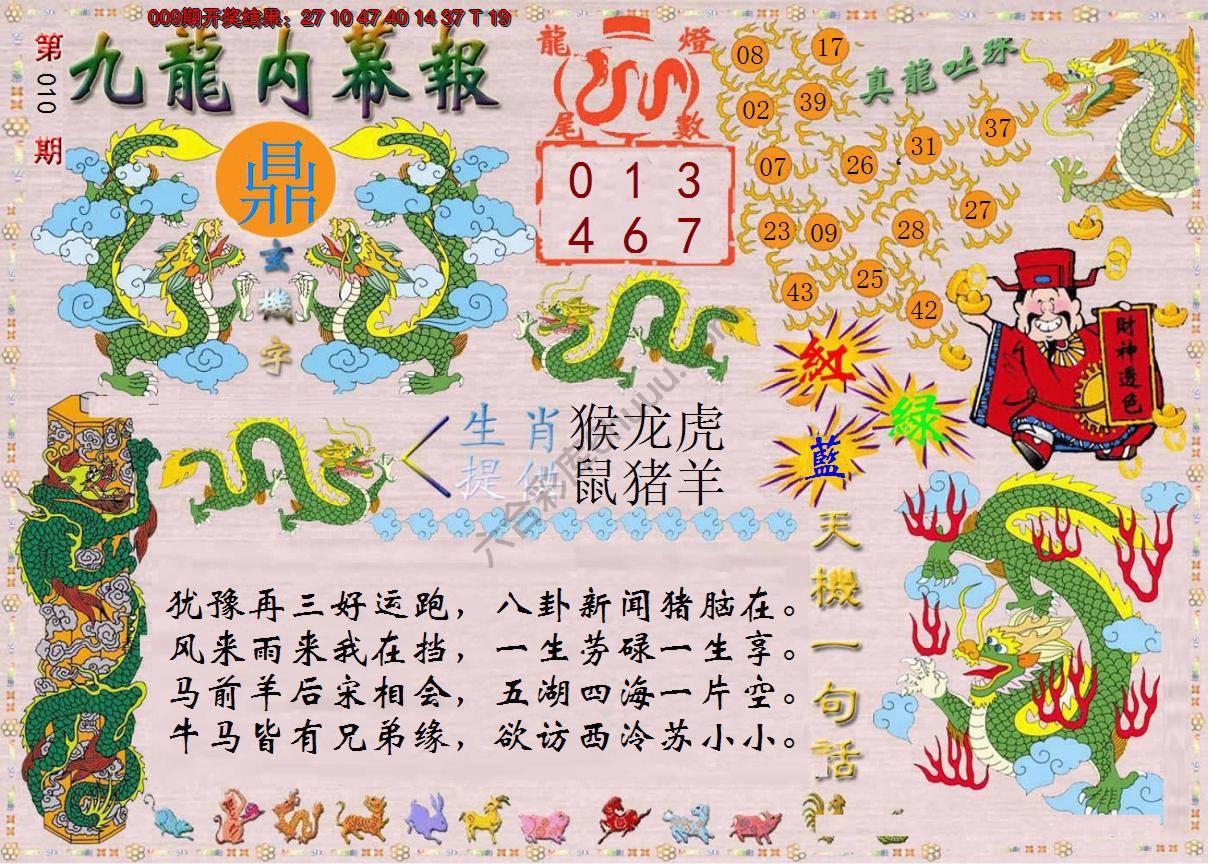 009期开奖结果：27 10 47 40 14 37 T 19
第010期
九龍内幕報
鼎
玄機字
龍燈
尾數
0 1 3
4 6 7
真龍吐珠
08
17
02
39
31
37
07
26
27
23
09
28
25
43
42
財神透色
紅
綠
藍
生肖
提供
猴龙虎
鼠猪羊
天機一句話
犹豫再三好运跑，八卦新闻猪脑在。
风来雨来我在挡，一生劳碌一生享。
马前羊后宋相会，五湖四海一片空。
牛马皆有兄弟缘，欲访西冷苏小小。